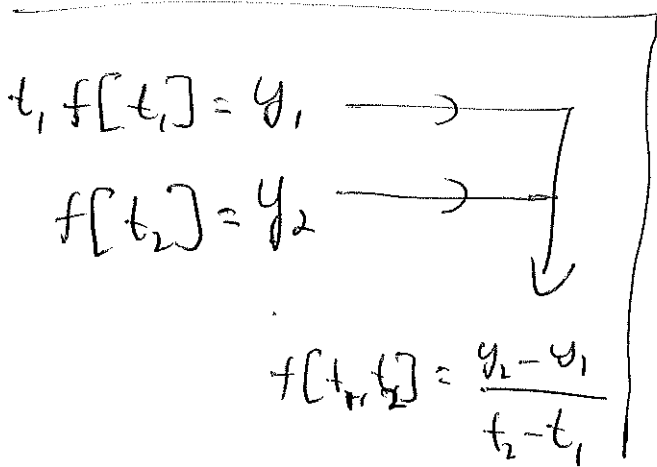 t₁ f[t₁] = y₁
f[t₂] = y₂
f[t₁, t₂] = (y₂ - y₁) / (t₂ - t₁)